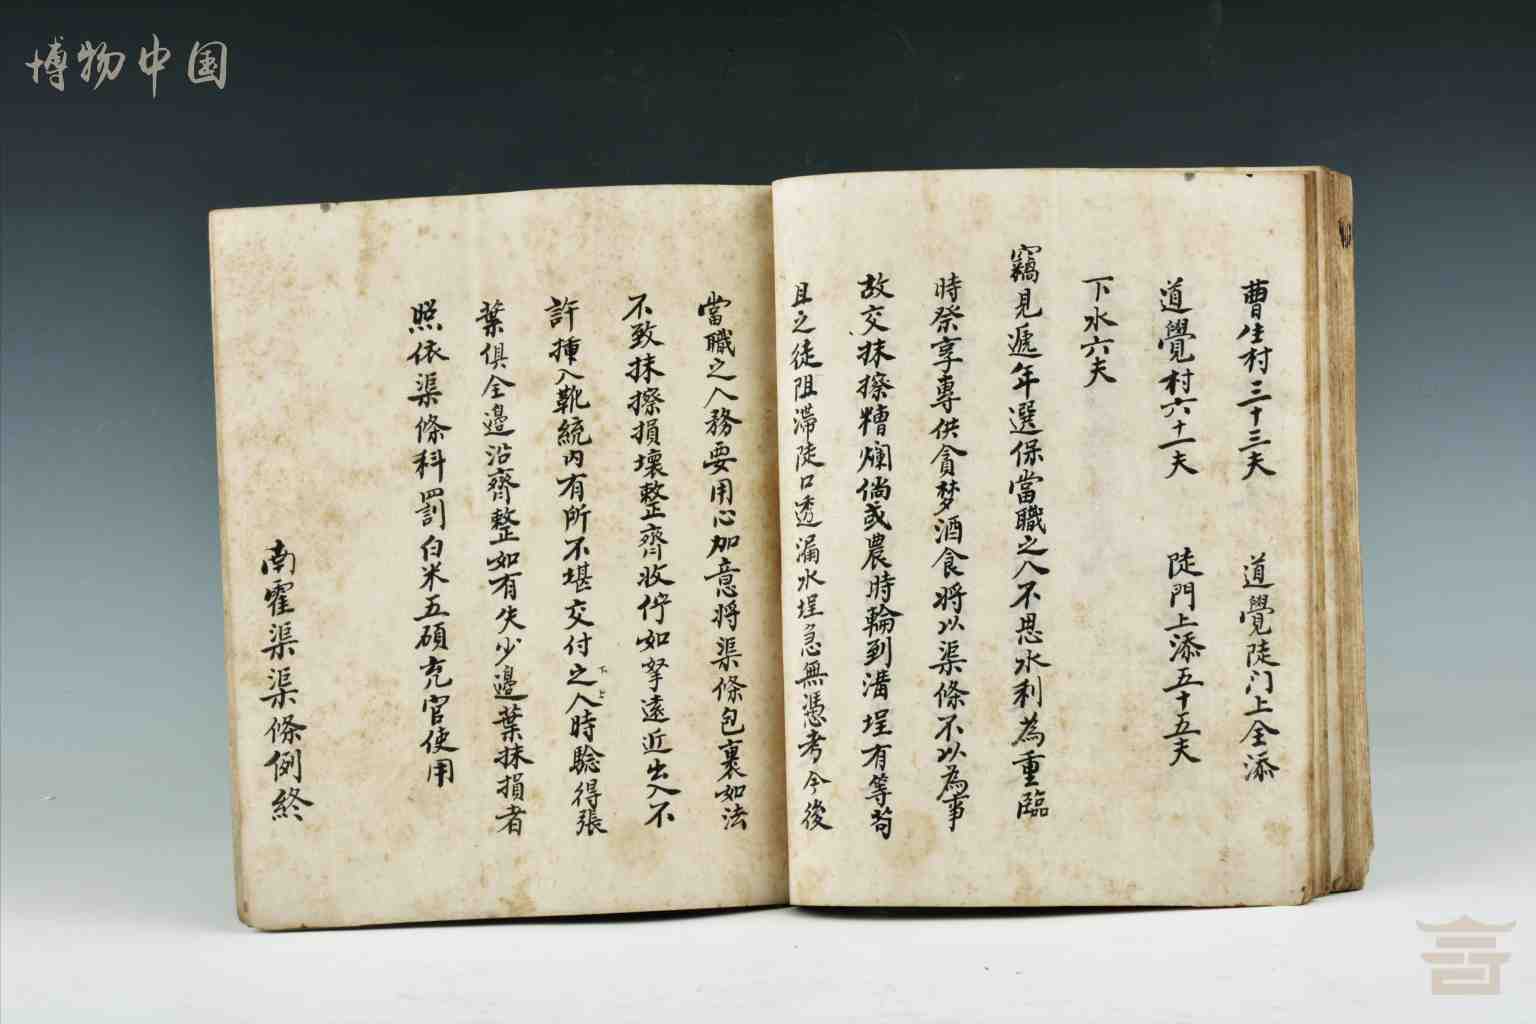 博物中国
曹生村三十三夫 道覺陡门上全添
道覺村六十一夫 陡門上添五十五夫
下水六夫
竊見遞年選保當職之人不思水利為重臨
時祭享專供貪梦酒食將以渠條不以為事
故交抹擦糟爛倘或農時輪到溝埕有等苟
且之徒阻滞陡口透漏水埕急無憑考今後
當職之人務要用心加意將渠條包裹如法
不致抹擦損壞整齊收佇如拏遠近出入不
許捶入靴統内有所不堪交付之下人上時騐得張
葉俱全邊沿齊整如有失少邊葉抹損者
照依渠條科罰白米五碩充官使用
南霍渠渠條例終